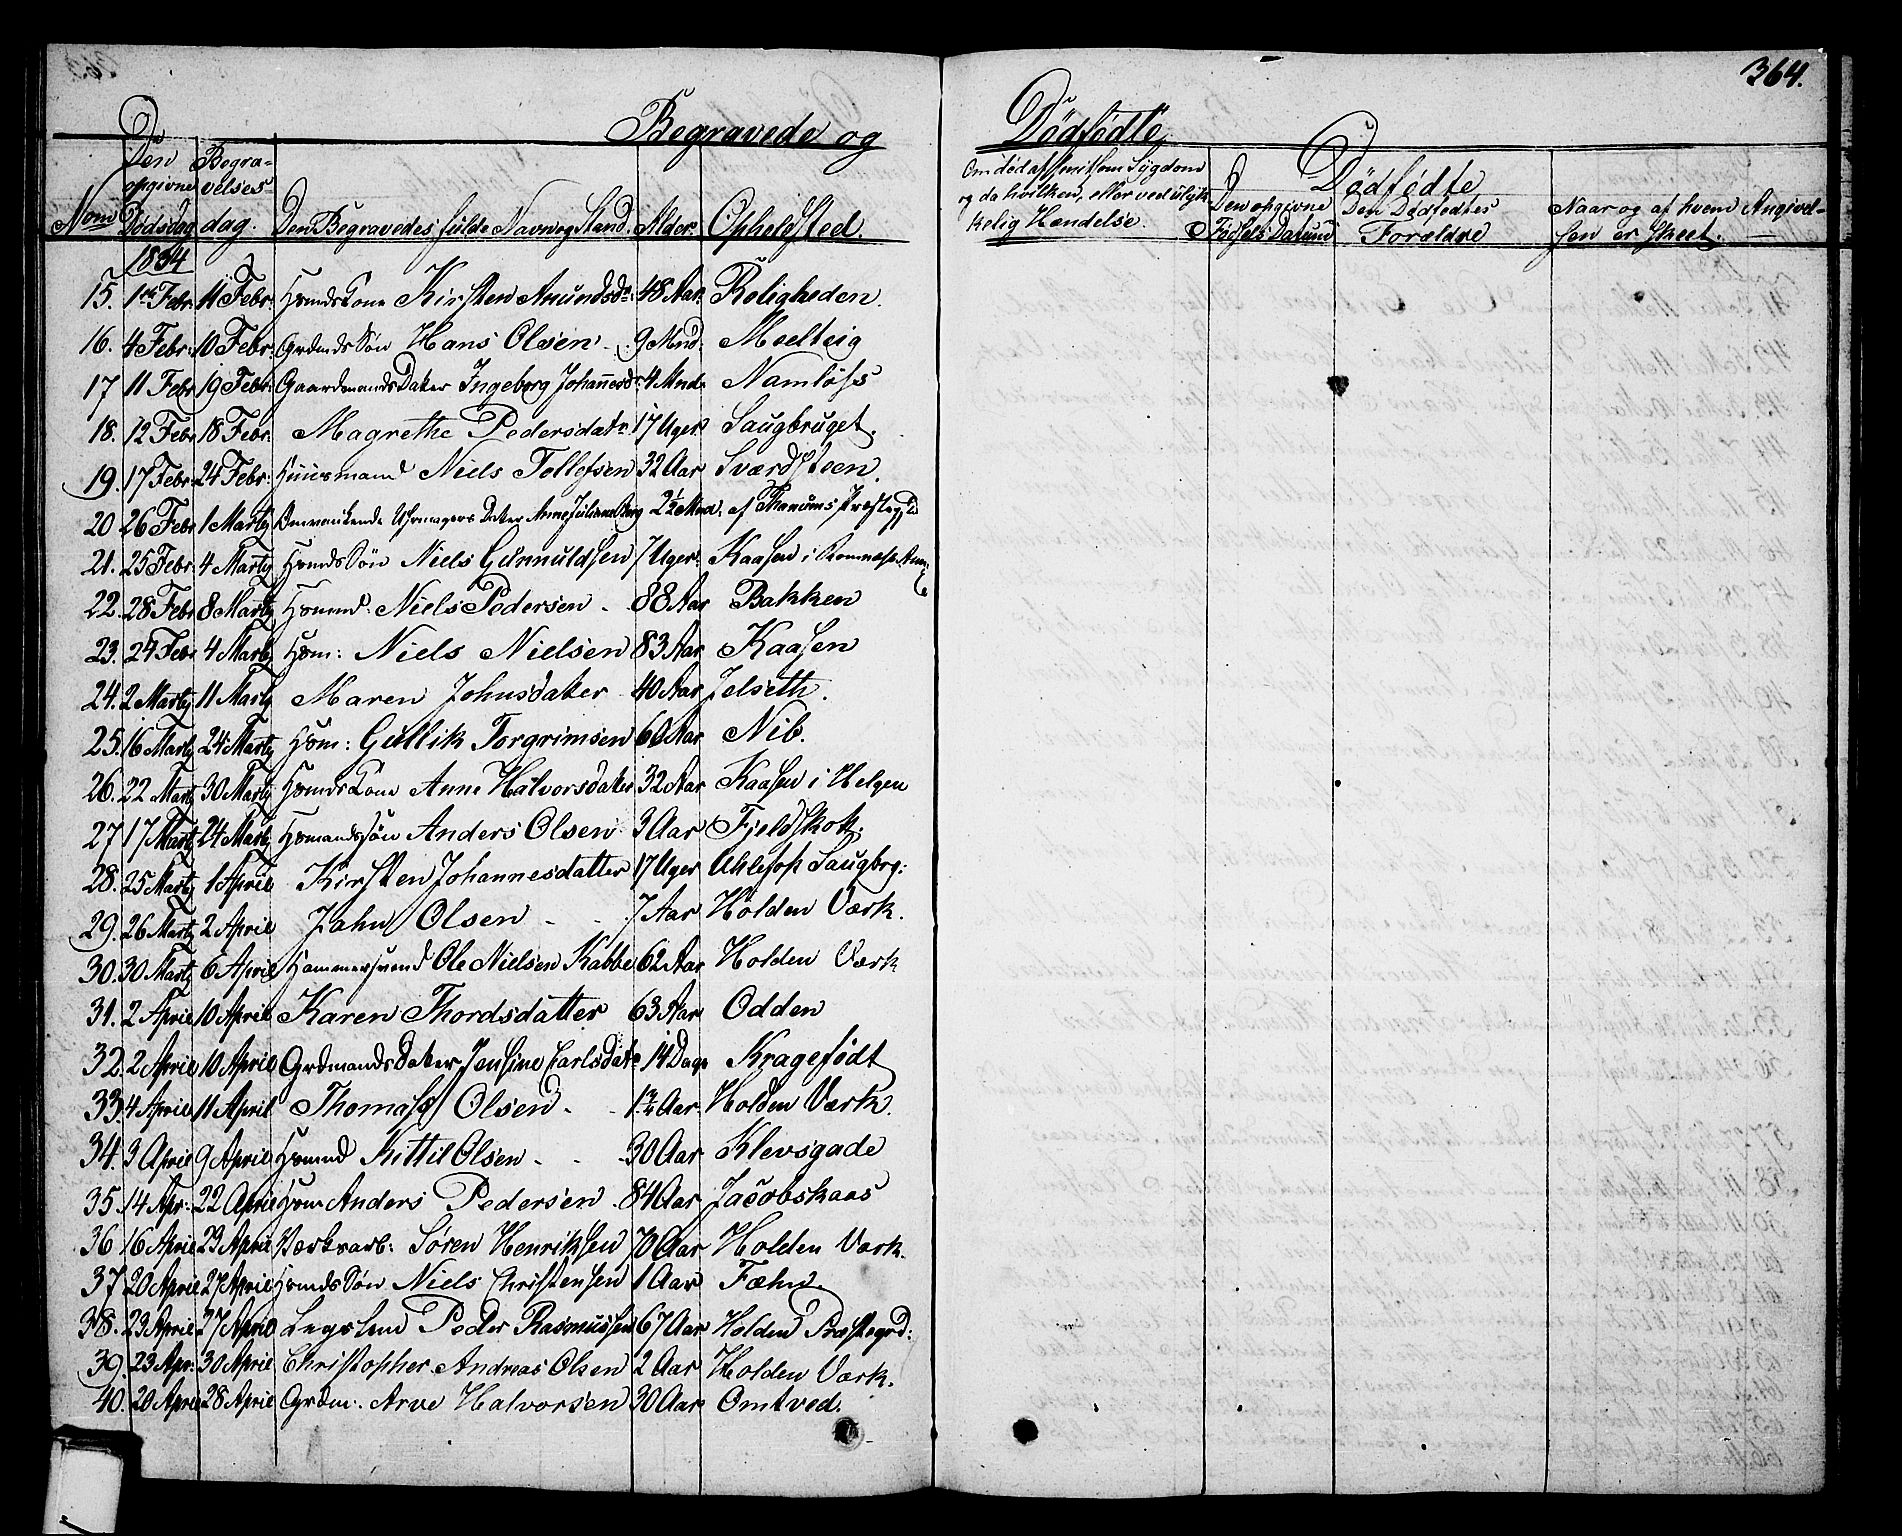 364.
Begravede og Dødfødte
Nom Den opgivne Dødsdag Begravelses dag. Den Begravedes fulde Navn og Stand. Alder. Opholdsted. Om død af smitsom Sygdom og da hvilken, eller ved ulykkelig Hændelse. Dødfødte Den opgivne Fødsels Datum Den Dødfødtes Forældre Naar og af hvem Angivelsen er skeet.
1834
15. 1ste Febr. 11 Febr: HmandsKone Kirsten Amundsdr. 48 Aar. Roligheden.
16. 4 Febr: 10 Febr: GrdmdsSøn Hans Olsen 9 Mnd. Moelteig
17 11 Febr 19 Febr: GaardmandsDater Ingeborg Johannesdr. 4 Mnd. Namløss
18. 12 Febr 18 Febr. Magrethe Pedersdatr. 17 Uger. Saugbruget.
19. 17 Febr. 24 Febr. Huusmand Niels Tollefsen 32 Aar Sværdsteen.
20 26 Febr 1 Marty Omvankende Uhrmagers Dater Anne Juliane Berg 2½ Mnd. af Thanums Præstegjd
21. 25 Febr. 4 Marty HmdsSøn Niels Gunnuldsen 7 Uger. Kaasen i Romnæs Anx
22. 28 Febr 8 Marty Hmmd: Niels Pedersen - 88 Aar Bakken
23. 24 Febr 4 Marty Hm: Niels Nielsen 83 Aar Kaasen
24. 2 Marty 11 Marty Maren Johnsdater 40 Aar Jelseth.
25. 16 Marty 24 Marty Hm: Gullik Torgrimsen 60 Aar Nib.
26. 22 Marty 30 Marty HmdsKone Anne Halvorsdater 32 Aar Kaasen i Helgen
27 17 Marty 24 Marty Hmandssøn Anders Olsen 3 Aar Fjeldskot.
28. 25 Marty 1 April Kirsten Johannesdatter 17 Uger Uhlefos Saugbrg:
29. 26 Marty 2 April Jahn Olsen - - 7 Aar Holden Værk.
30. 30 Marty 6 April Hammersmed Ole Nielsen Kabbe 62 Aar Holden Værk
31. 2 April 10 April Karen Thordsdatter 63 Aar Odden
32. 2 April 10 April GrdmandsDater Jensine Carlsdatr 14 Dage Kragefødt
33. 4 April 11 April Thomass Olsen - - 1½ Aar. Holden Værk.
34. 3 April 9 April Hmmd Kittil Olsen - - 30 Aar Klevsgade
35. 14 Apr. 22 April Hm Anders Pedersen 84 Aar Jacobskaas
36 16 April 23 April Værksarb: Søren Henriksen 70 Aar Holden Værk.
37 20 April 27 April HmdsSøn Niels Christensen 1 Aar Fæhn.
38. 23 April 27 April Lægslem Peder Rasmussen 67 Aar Holden Præstegrd:
39. 23 Apr. 30 April Christopher Andreas Olsen 2 Aar Holden Værk.
40. 20 April 28 April Grdm. Arve Halvorsen 30 Aar Omtved.